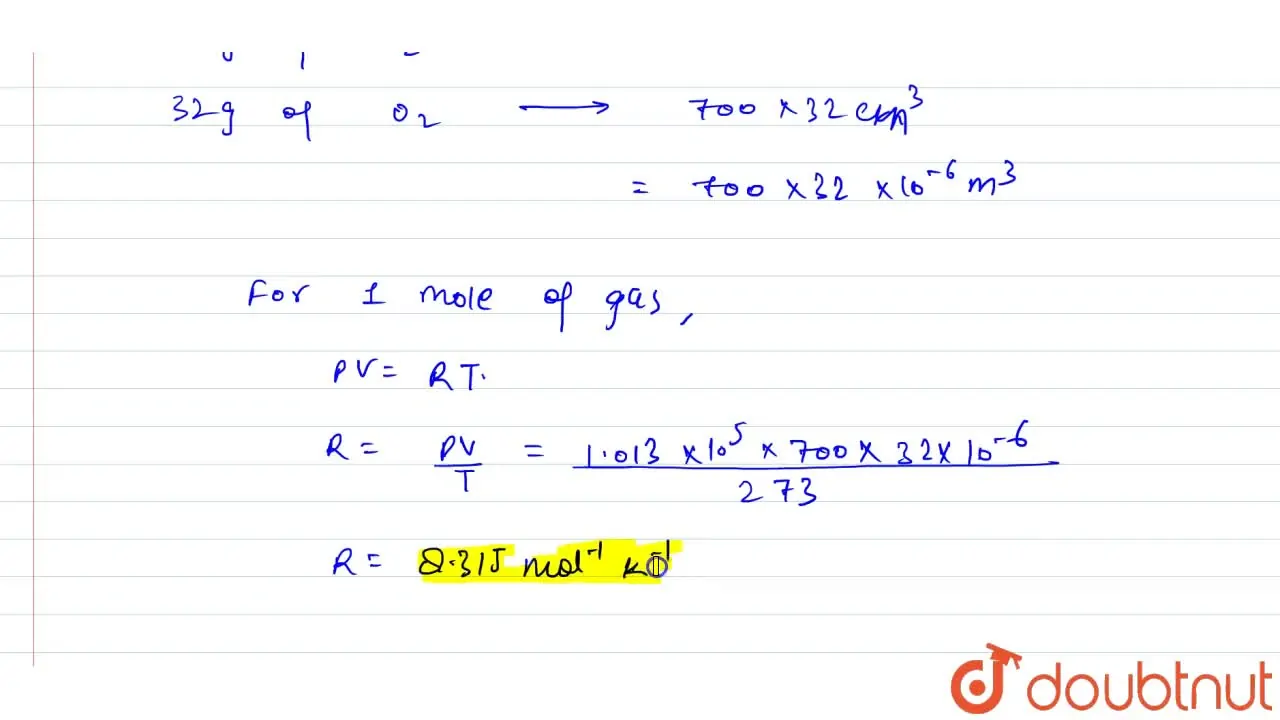 32g of O₂ ⟶ 700 × 32 cm³
= 700 × 32 × 10⁻⁶ m³
For 1 mole of gas,
PV = RT.
R = PV/T = 1.013 × 10⁵ × 700 × 32 × 10⁻⁶ / 273
R = 8.31J mol⁻¹ K⁻¹
doubtnut